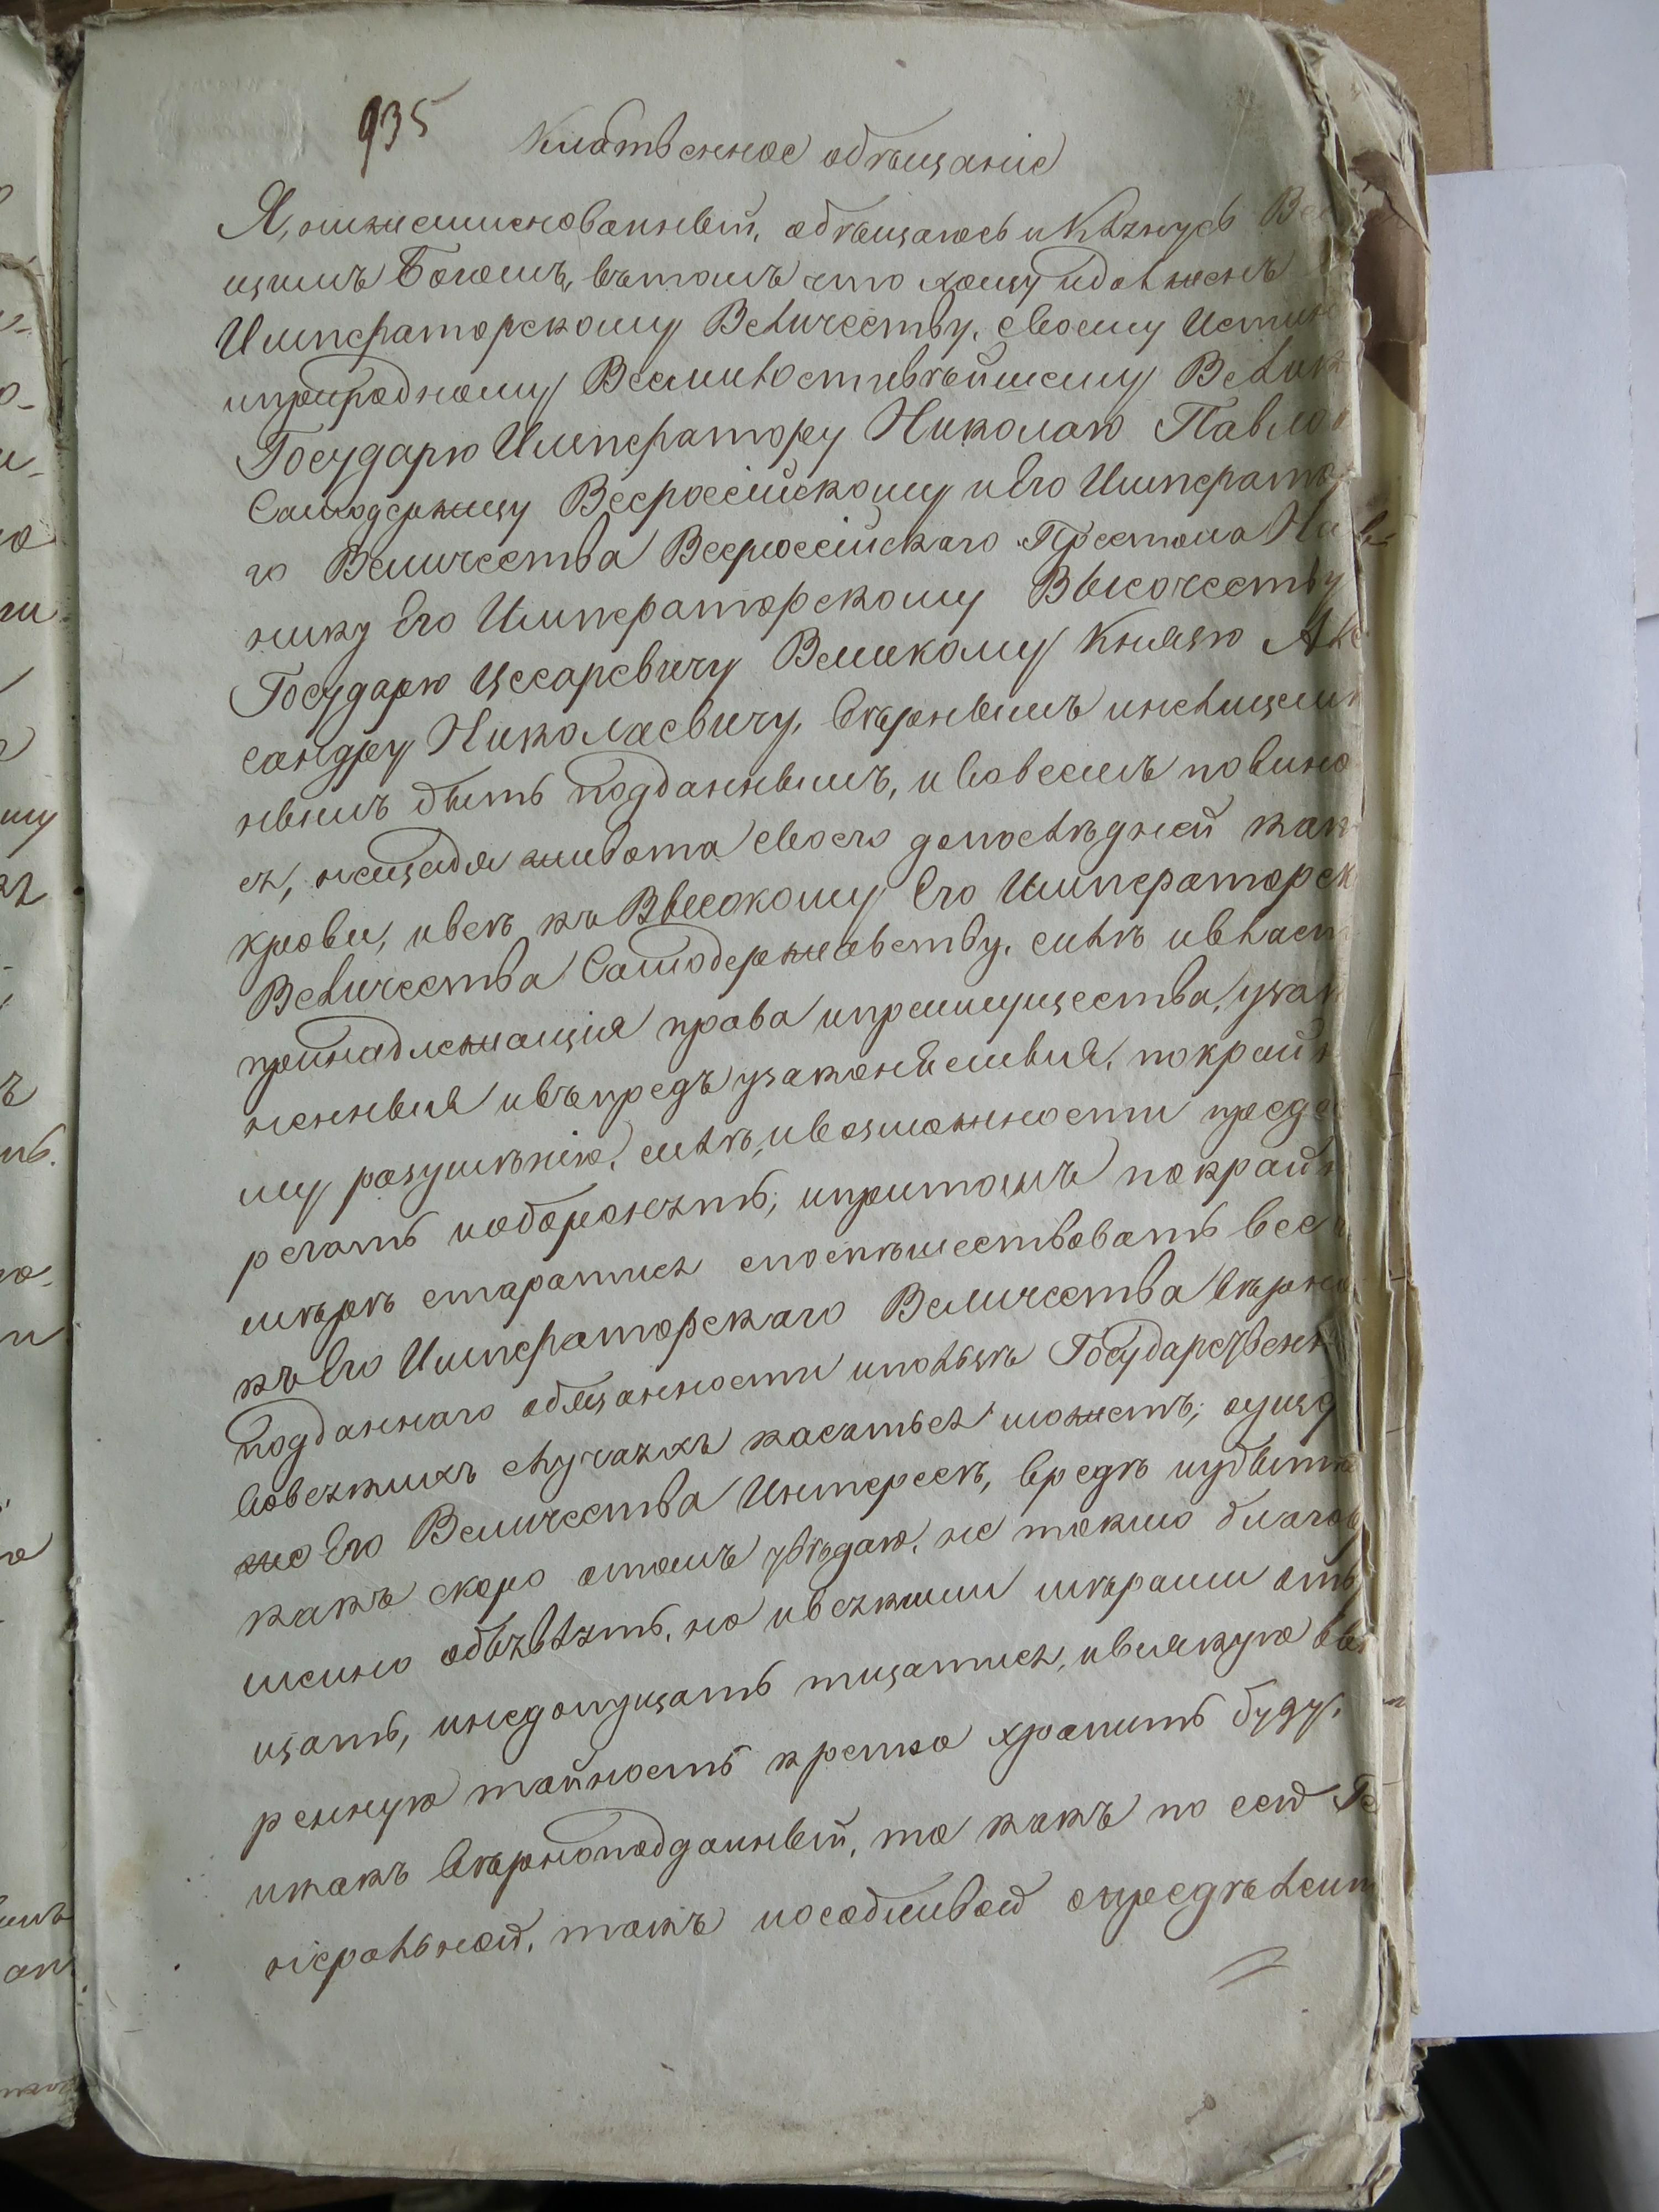 935
Клятвенное обѣщаніе
Я, нижеименованный, обѣщаюсь и клянусь Все
щимъ Богомъ, вътомъ что хощу идолженъ
Императорскому Величеству, своему Истин
иприродному Всемилостивѣйшему Велик
Государю Императору Николаю Павло
Самодержцу Всероссійскому и Его Император
го Величества Всероссійскаго Престола Нас
нику Его Императорскому Высочеству
Государю Цесаревичу Великому Князю Алек
сандру Николаевичу, вѣрнымъ инелицем
нымъ быть подданнымъ, и вовсемъ повино
ся, нещадя живота своего допослѣдней кап
крови, ивсѣ къ Высокому Его Императорск
Величества Самодержавству, силѣ ивласт
принадлежащія права ипреимущества, узак
ненныя ивъпредъ узаконяемыя, покрайн
му разумѣнію, силѣ, ивозможности предо
регать иоборонять; ипритомъ покрайн
мѣрѣ старатися споспѣшествовать все
къ Его Императорскаго Величества вѣрно
подданнаго обязанности ипользѣ Государственн
вовсякихъ случаяхъ касаться можетъ; оущер
же Его Величества Интересѣ, вредѣ иубытк
какъ скоро отомъ увѣдаю, не токмо благов
менно объявлять, но ивсякими мѣрами отвр
щать, инедопущать тщатися, ивсякую ввѣ
ренную тайность крепко хранить буду,
икакъ вѣрноподданный, то какъ по сей Ге
неральной, такъ иособливой опредѣленн